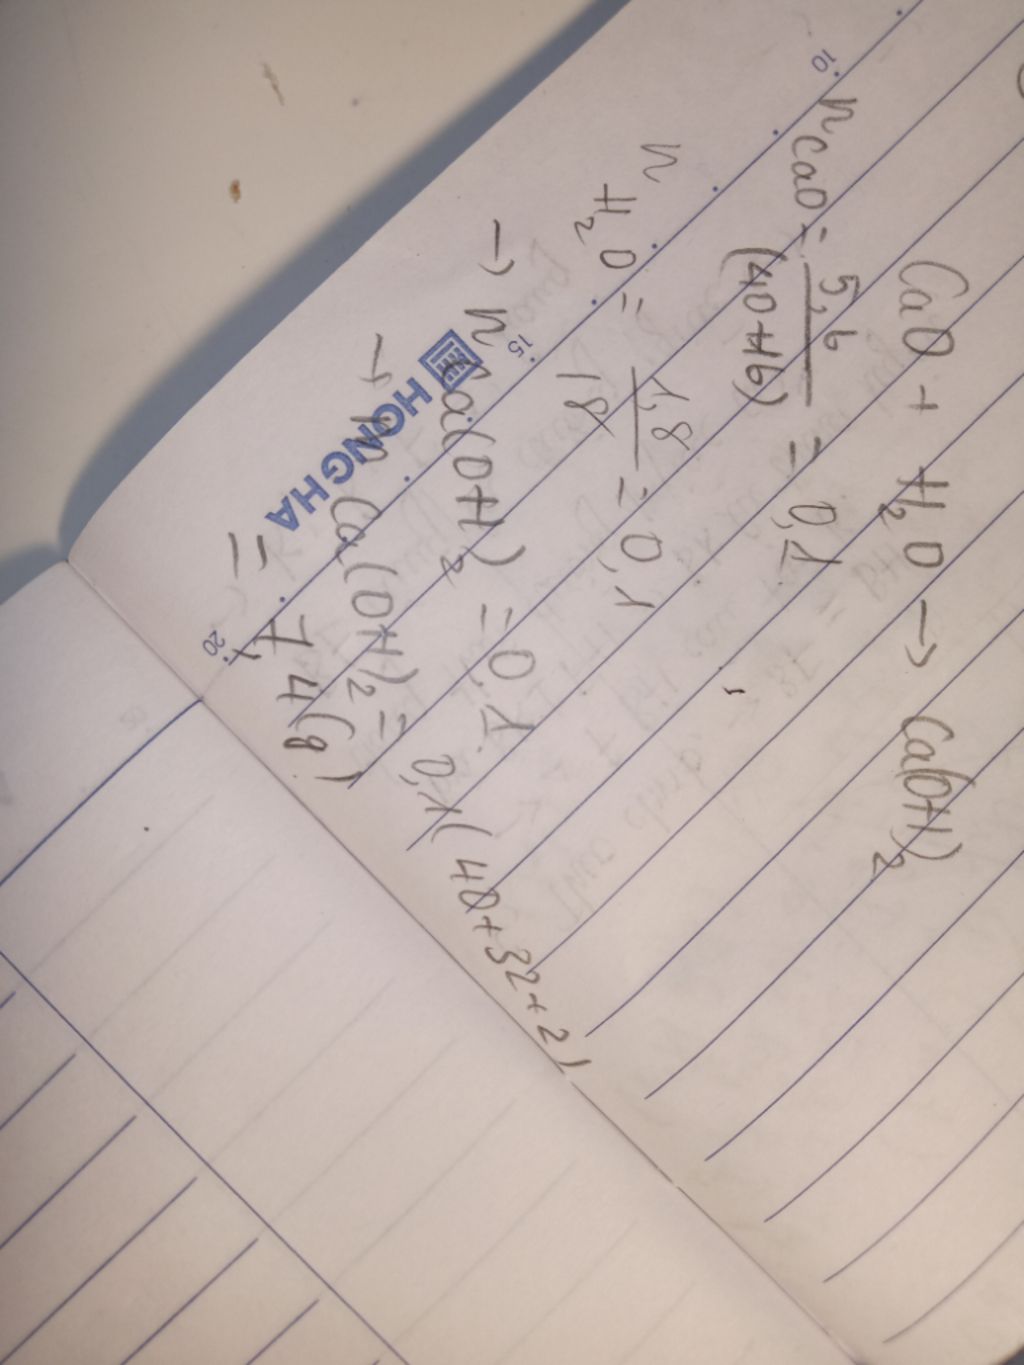 CaO + H2O → Ca(OH)2
n CaO = 5,6 / (40+16) = 0,1
n H2O = 1,8 / 18 = 0,1
→ n Ca(OH)2 = 0,1
→ m Ca(OH)2 = 0,1(40+32+2)
= 7,4(g)
HONG HA
10
15
20